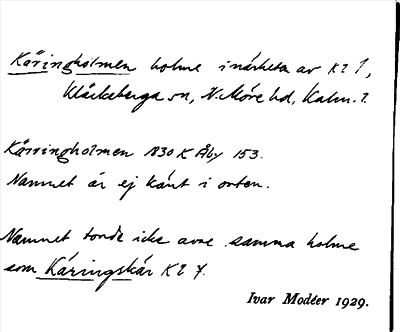 Käringholmen holme i närheten av K 2 1,
Kläckeberga sn, N. Möre hd, Kalm. l.
Kärringholmen 1830 K Åby 153.
Namnet är ej känt i orten.
Namnet torde icke avse samma holme
som Käringskär K 2 7.
Ivar Modéer 1929.